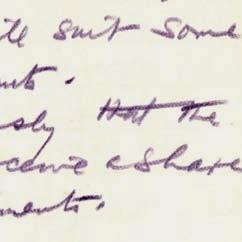 will suit some
nts.
sly that the
receive a share
ments.